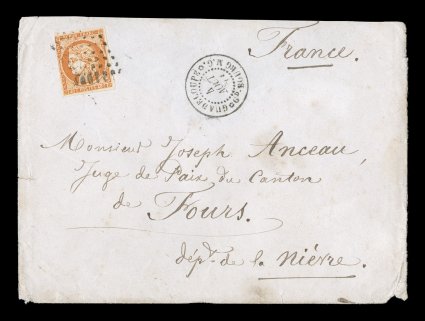 France.
GUADELOUPE
Monsieur Joseph Anceau,
Juge de Paix du Canton
de Fours.
dépt. de la Nièvre.